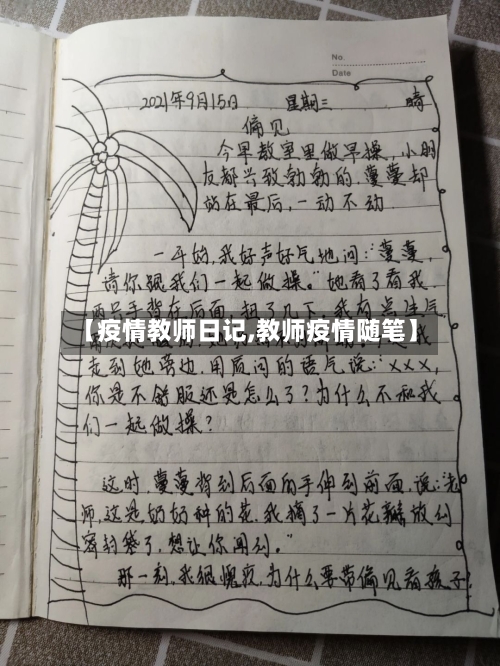 No
Date
2021年9月15日 星期三 晴
偏见
今早教室里做早操,小朋
友都兴致勃勃的,蔓蔓却
站在最后,一动不动
一开始,我好声好气地问:"蔓蔓,
请你跟我们一起做操。"她看了看我
【疫情教师日记,教师疫情随笔】
走到她旁边,用质问的语气说:"×××,
你是不舒服还是怎么了?为什么不和我
们一起做操?
这时,蔓蔓背到后面的手伸到前面,说:"老
师,这是奶奶种的花,我摘了一片花瓣放到
密封袋了,想让你闻到。"
那一刻,我很愧疚,为什么要带偏见看孩子